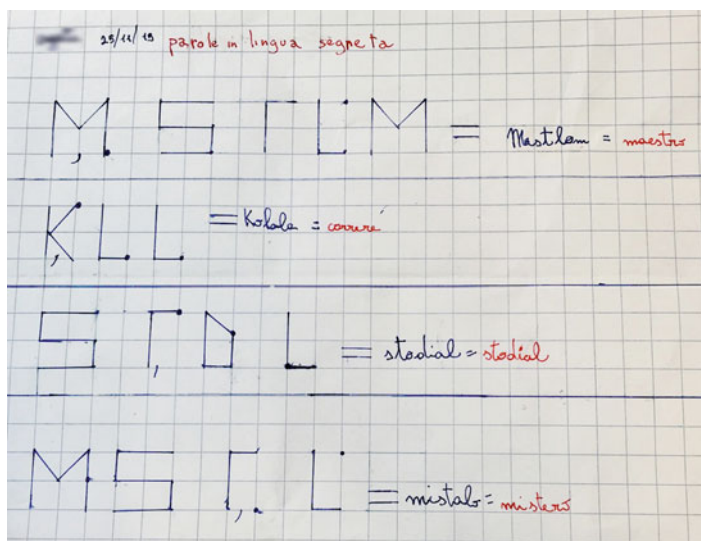 25/11/19 parole in lingua segreta
M, S T L M = Mastlam = maestro
K, L L = Kolala = correre
S T, D L = stodial = stodial
M S T, L = mistalo = mistero